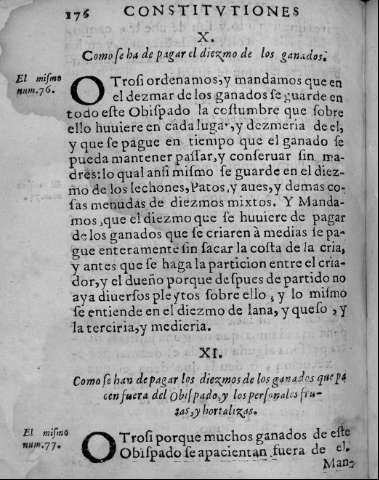 176 CONSTITVTIONES
X.
Como se ha de pagar el diezmo de los ganados.
El mismo
num.76.
OTrosi ordenamos, y mandamos que en
el dezmar de los ganados se guarde en
todo este Obispado la costumbre que sobre
ello huuiere en cada lugar, y dezmeria de el,
y que se pague en tiempo que el ganado se
pueda mantener pastar, y conseruar sin ma-
dres: lo qual ansi mismo se guarde en el diez-
mo de los lechones, Patos, y aues, y demas co-
sas menudas de diezmos mixtos. Y Manda-
mos, que el diezmo que se huuiere de pagar
de los ganados que se criaren à medias se pa-
gue enteramente sin sacar la costa de la cria,
y antes que se haga la particion entre el cria-
dor, y el dueño porque despues de partido no
aya diuersos pleytos sobre ello, y lo mismo
se entiende en el diezmo de lana, y queso, y
la terciria, y medieria.
XI.
Como se han de pagar los diezmos de los ganados que pa
cen fuera del Obispado, y los personales fru-
tas, y hortalizas.
El mismo
num.77.
OTrosi porque muchos ganados de este
Obispado se apacientan fuera de el.
Man-